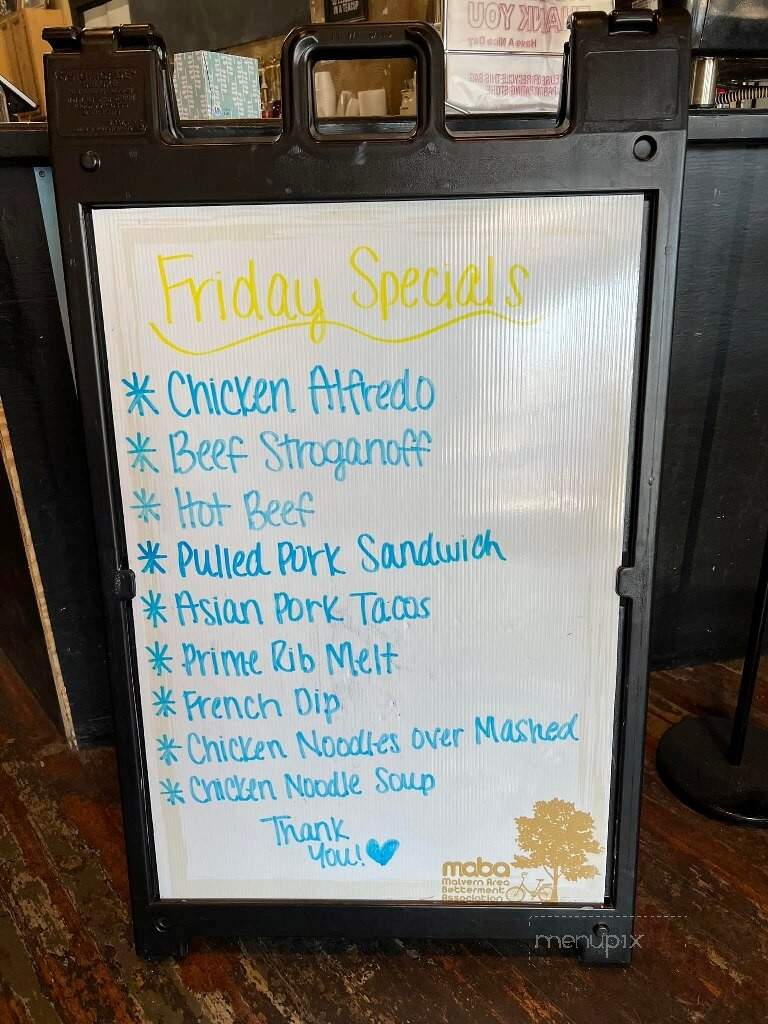 IN A TEACUP
THANK YOU
Have A Nice Day
Friday Specials
* Chicken Alfredo
* Beef Stroganoff
* Hot Beef
* Pulled Pork Sandwich
* Asian Pork Tacos
* Prime Rib Melt
* French Dip
* Chicken Noodles over Mashed
* Chicken Noodle Soup
Thank
You!
maba
Malvern Area
Betterment
Association
menupix